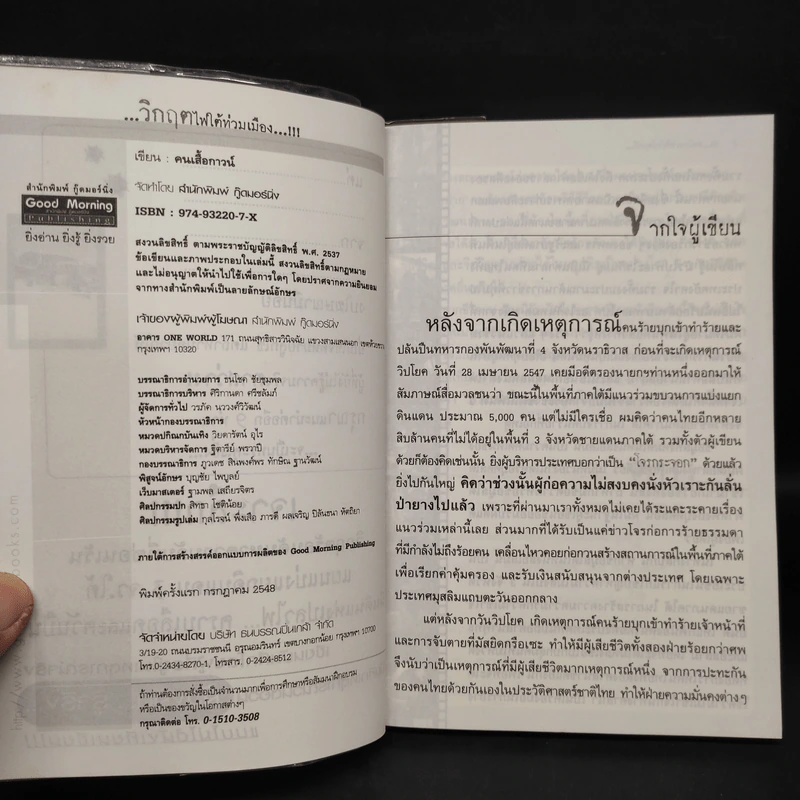 ...วิกฤตไฟใต้ท่วมเมือง...!!!
เขียน : คนเสื้อกาวน์
สำนักพิมพ์ กู๊ดมอร์นิ่ง
Good Morning
Publishing
ยิ่งอ่าน ยิ่งรู้ ยิ่งรวย
จัดทำโดย สำนักพิมพ์ กู๊ดมอร์นิ่ง
ISBN : 974-93220-7-X
สงวนลิขสิทธิ์ ตามพระราชบัญญัติลิขสิทธิ์ พ.ศ. 2537
ข้อเขียนและภาพประกอบในเล่มนี้ สงวนลิขสิทธิ์ตามกฎหมาย
และไม่อนุญาตให้นำไปใช้เพื่อการใดๆ โดยปราศจากความยินยอม
จากทางสำนักพิมพ์เป็นลายลักษณ์อักษร
เจ้าของผู้พิมพ์ผู้โฆษณา สำนักพิมพ์ กู๊ดมอร์นิ่ง
อาคาร ONE WORLD 171 ถนนสุทธิสารวินิจฉัย แขวงสามเสนนอก เขตห้วยขวาง
กรุงเทพฯ 10320
บรรณาธิการอำนวยการ ธนโชค ชัยชุมพล
บรรณาธิการบริหาร ศิริกานดา ศรีชลัมภ์
ผู้จัดการทั่วไป วรภัค นววงศ์วิวัฒน์
หัวหน้ากองบรรณาธิการ
หมวดปกิณกบันเทิง วิยดารัตน์ อุไร
หมวดบริหารจัดการ ฐิตารีย์ พรวาปี
กองบรรณาธิการ ภูวเดช สินพงศ์พร ทักษิณ ฐานวัฒน์
พิสูจน์อักษร บุญชัย ไพบูลย์
เว็บมาสเตอร์ ฐามพล เสถียรจิตร
ศิลปกรรมปก สิทธา โชติน้อย
ศิลปกรรมรูปเล่ม กุลโรจน์ พึ่งเสือ ภารดี ผลเจริญ ปิลันธนา ทัตถิยา
ภายใต้การสร้างสรรค์ออกแบบการผลิตของ Good Morning Publishing
พิมพ์ครั้งแรก กรกฎาคม 2548
จัดจำหน่ายโดย บริษัท ธนบรรณปิ่นเกล้า จำกัด
3/19-20 ถนนบรมราชชนนี อรุณอมรินทร์ เขตบางกอกน้อย กรุงเทพฯ 10700
โทร.0-2434-8270-1, โทรสาร, 0-2424-8512
ถ้าท่านต้องการสั่งซื้อเป็นจำนวนมากเพื่อการศึกษาหรือสัมมนาฝึกอบรม
หรือเป็นของขวัญในโอกาสต่างๆ
กรุณาติดต่อ โทร. 0-1510-3508
จากใจผู้เขียน
หลังจากเกิดเหตุการณ์คนร้ายบุกเข้าทำร้ายและ
ปล้นปืนทหารกองพันพัฒนาที่ 4 จังหวัดนราธิวาส ก่อนที่จะเกิดเหตุการณ์
วิปโยค วันที่ 28 เมษายน 2547 เคยมีอดีตรองนายกฯท่านหนึ่งออกมาให้
สัมภาษณ์สื่อมวลชนว่า ขณะนี้ในพื้นที่ภาคใต้มีแนวร่วมขบวนการแบ่งแยก
ดินแดน ประมาณ 5,000 คน แต่ไม่มีใครเชื่อ ผมคิดว่าคนไทยอีกหลาย
สิบล้านคนที่ไม่ได้อยู่ในพื้นที่ 3 จังหวัดชายแดนภาคใต้ รวมทั้งตัวผู้เขียน
ด้วยก็ต้องคิดเช่นนั้น ยิ่งผู้บริหารประเทศบอกว่าเป็น "โจรกระจอก" ด้วยแล้ว
ยิ่งไปกันใหญ่ คิดว่าช่วงนั้นผู้ก่อความไม่สงบคงนั่งหัวเราะกันลั่น
ป่ายางไปแล้ว เพราะที่ผ่านมาเราทั้งหมดไม่เคยได้ระแคะระคายเรื่อง
แนวร่วมเหล่านี้เลย ส่วนมากที่ได้รับเป็นแค่ข่าวโจรก่อการร้ายธรรมดา
ที่มีกำลังไม่ถึงร้อยคน เคลื่อนไหวคอยก่อกวนสร้างสถานการณ์ในพื้นที่ภาคใต้
เพื่อเรียกค่าคุ้มครอง และรับเงินสนับสนุนจากต่างประเทศ โดยเฉพาะ
ประเทศมุสลิมแถบตะวันออกกลาง
แต่หลังจากวันวิปโยค เกิดเหตุการณ์คนร้ายบุกเข้าทำร้ายเจ้าหน้าที่
และการจับตายที่มัสยิดกรือเซะ ทำให้มีผู้เสียชีวิตทั้งสองฝ่ายร้อยกว่าศพ
จึงนับว่าเป็นเหตุการณ์ที่มีผู้เสียชีวิตมากเหตุการณ์หนึ่ง จากการปะทะกัน
ของคนไทยด้วยกันเองในประวัติศาสตร์ชาติไทย ทำให้ฝ่ายความมั่นคงต่างๆ